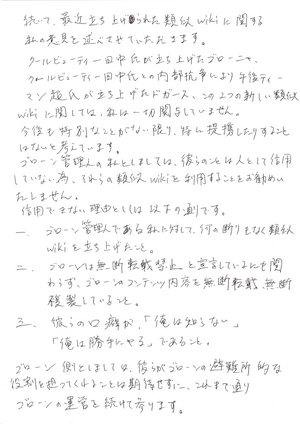 続いて、最近立ち上げられた類似wikiに関する
私の意見を述べさせていただきます。
クールビューティー田中氏が立ち上げたブローニャ、
クールビューティー田中氏との内部抗争により午後ティー
マン趙氏が立ち上げたドガース、この2つの新しい類似
wikiに関しては、私は一切関与していません。
今後も特別なことがない限り、特に提携したりすること
はないと考えています。
ブローン管理人の私としましては、彼らのことは人として信用
していない為、それらの類似wikiを利用することをお勧めい
たしません。
信用できない理由としては以下の通りです。
一、ブローン管理人である私に対して、何の断りもなく類似
wikiを立ち上げたこと。
二、ブローンは無断転載禁止と宣言しているにも関
わらず、ブローンのコンテンツ内容を無断転載、無断
複製していること。
三、彼らの口癖が、「俺は知らない」
「俺は勝手にやる」であること。
ブローン側としましては、彼らがブローンの避難所的な
役割を担ってくれることは期待せずに、これまで通り
ブローンの運営を続けて参ります。